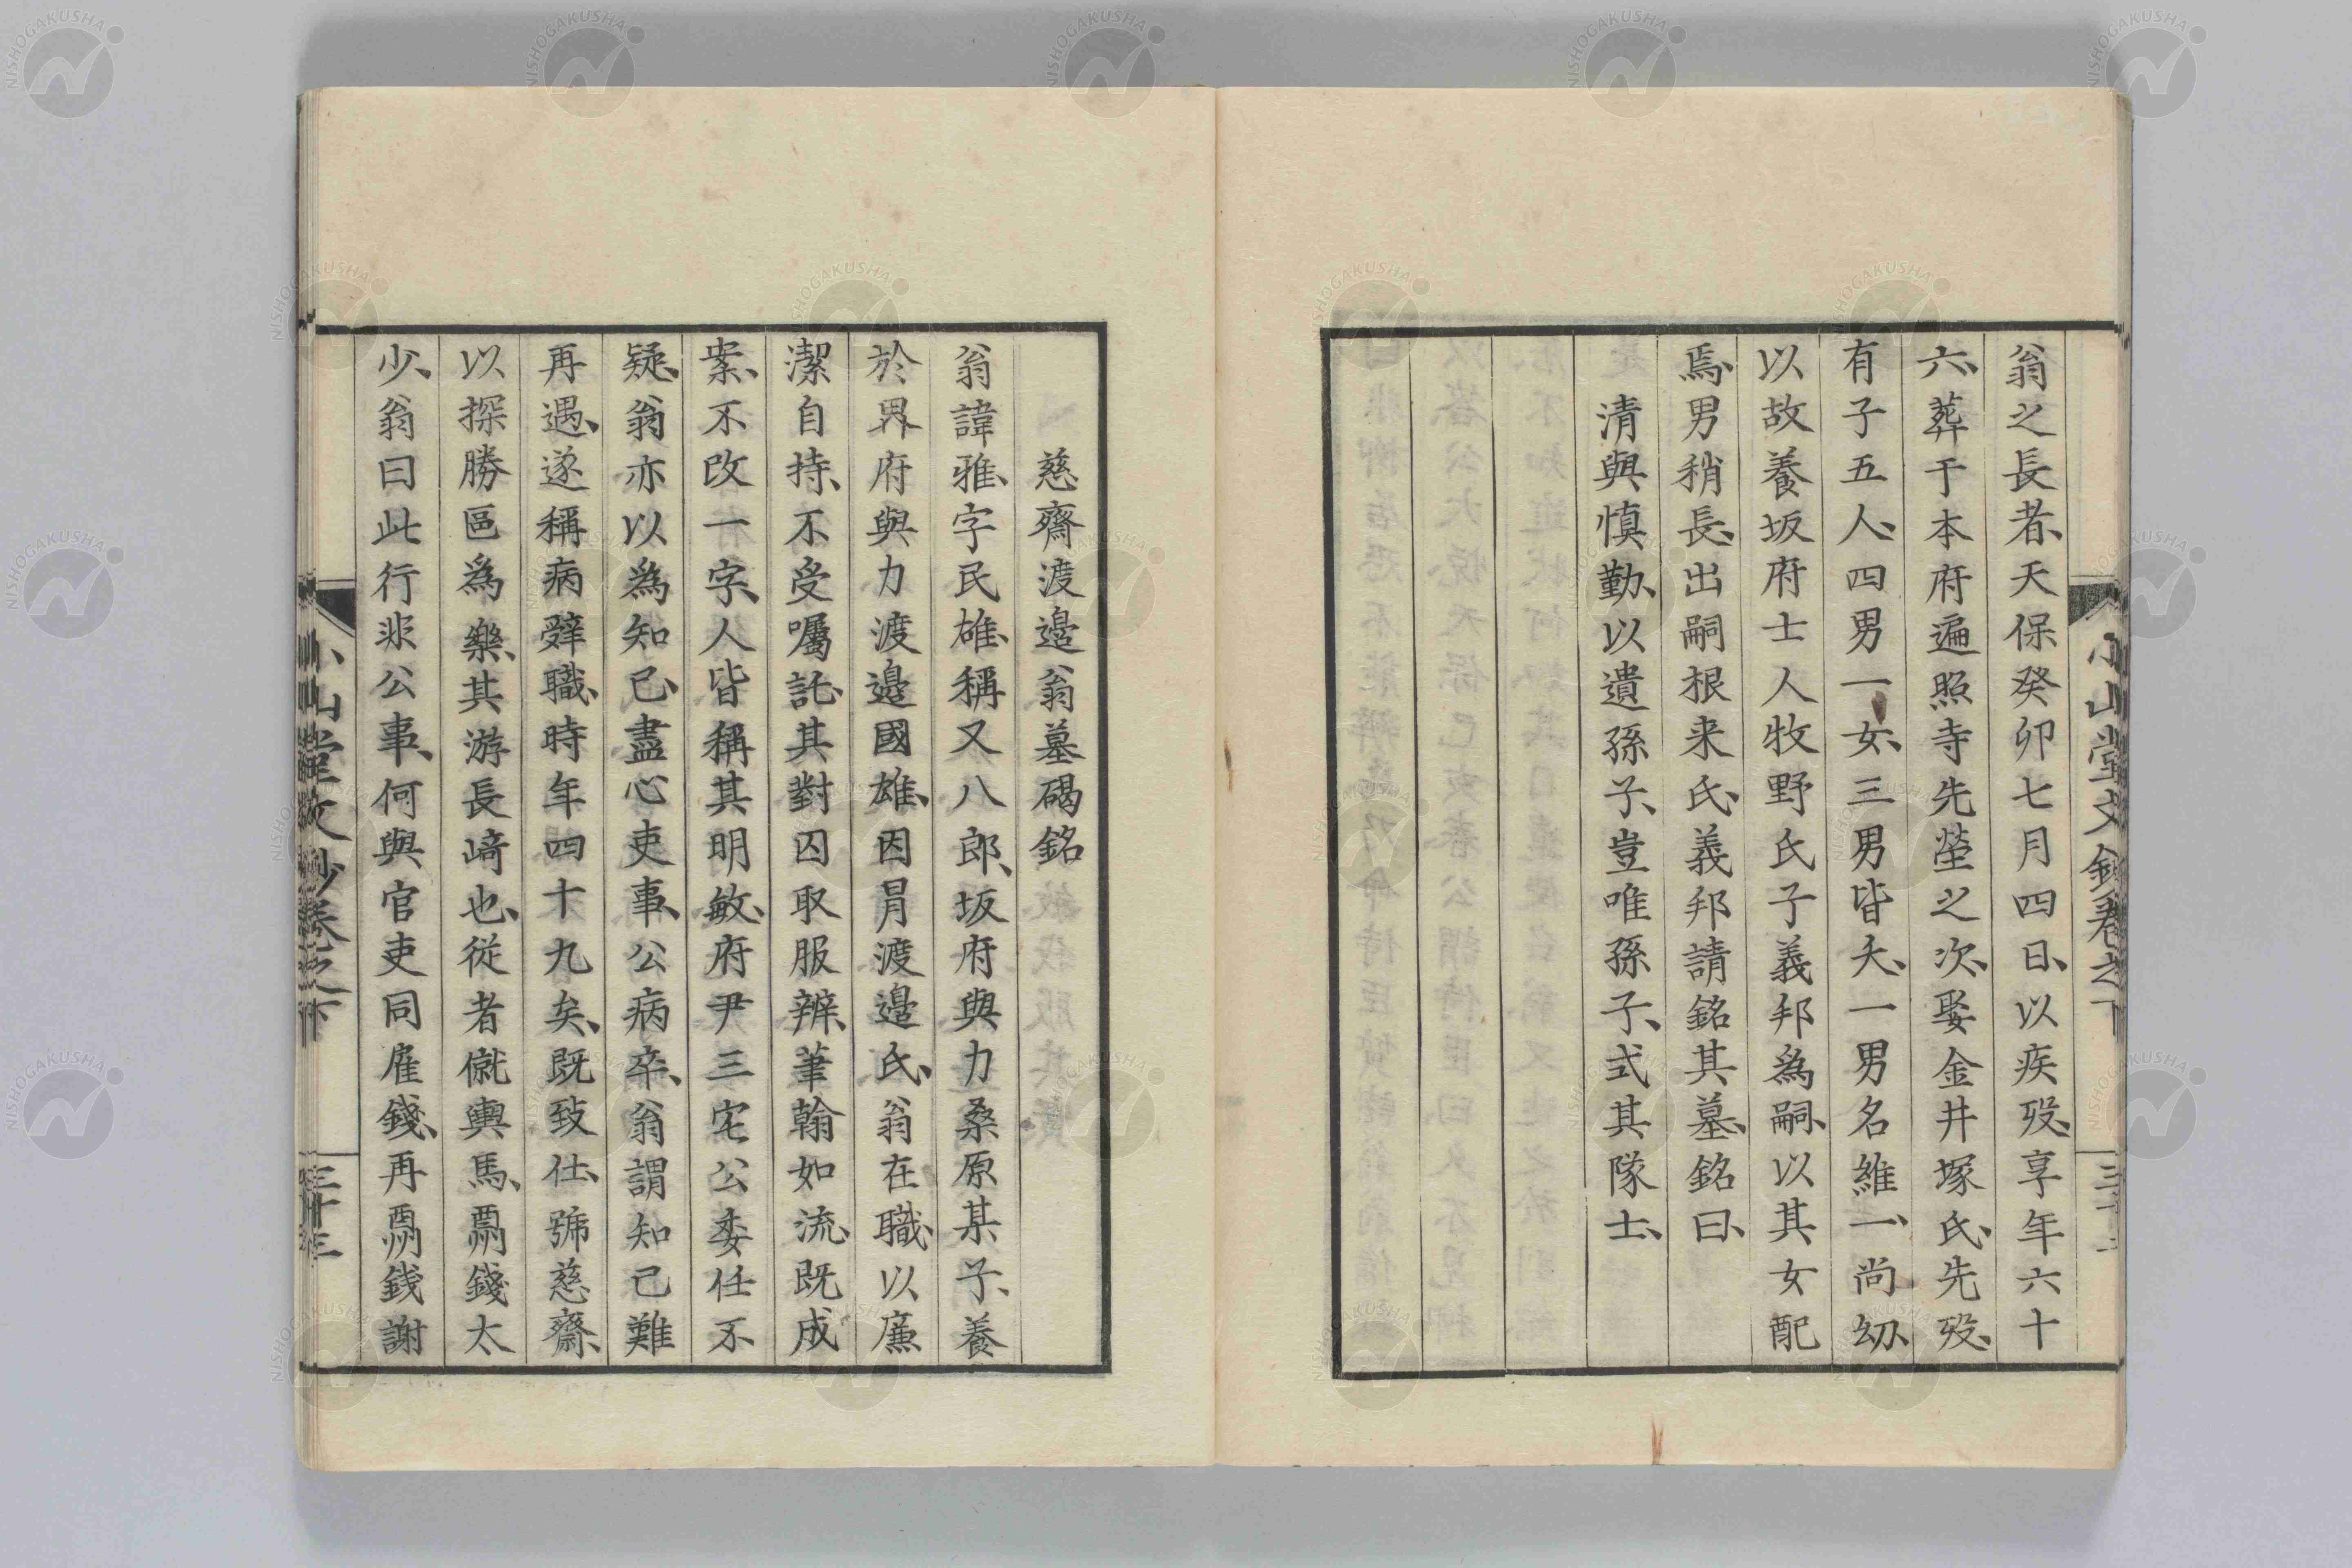 翁之長者、天保癸卯七月四日、以疾歿、享年六十
六、葬于本府遍照寺先塋之次、娶金井塚氏、先歿、
有子五人、四男一女、三男皆夭、一男名維一、尚幼、
以故養坂府士人牧野氏子義邦為嗣、以其女配
焉、男稍長、出嗣根来氏、義邦請銘其墓、銘曰、
清與慎勤、以遺孫子、豈唯孫子、式其隊士、
小山堂文鈔卷之下
三十二
慈齋渡邉翁墓碣銘
翁諱雅、字民雄、稱又八郎、坂府與力桑原某子、養
於界府與力渡邉國雄、因冐渡邉氏、翁在職、以廉
潔自持、不受囑託、其對囚取服辨、筆翰如流、既成
案、不改一字、人皆稱其明敏、府尹三宅公委任不
疑、翁亦以為知己、盡心吏事、公病卒、翁謂知己難
再遇、遂稱病辤職、時年四十九矣、既致仕、號慈齋、
以探勝區為樂、其游長﨑也、從者僦輿馬、酬錢太
少、翁曰此行非公事、何與官吏同雇錢、再酬銭謝
小山堂文鈔卷之下
三十三
NISHOGAKUSHA